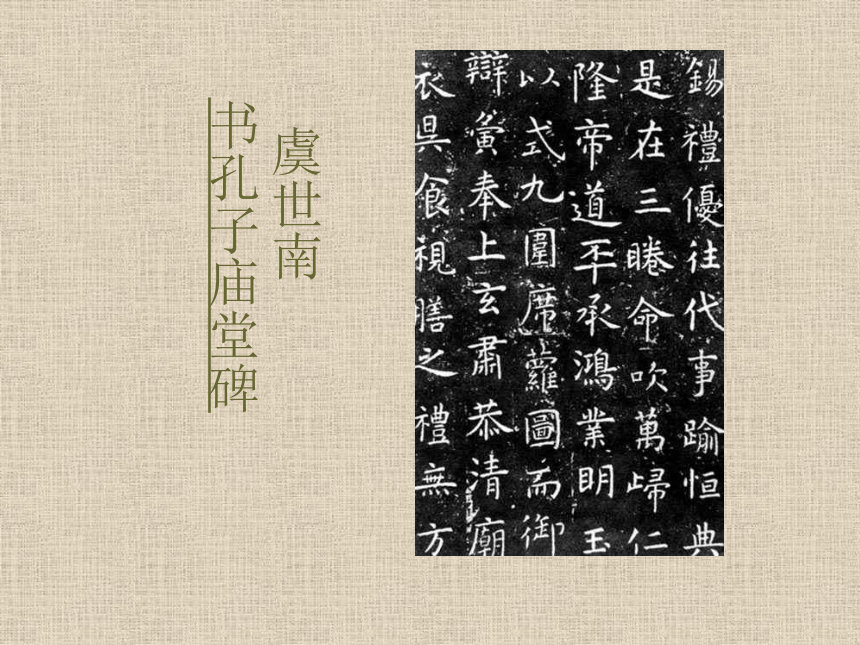 虞世南
书孔子庙堂碑
錫禮優往代事踰恒典
是在三睠命吹萬歸仁
隆帝道丕承鴻業明玉
以式九圍席蘿圖而御
辯寅奉上玄肅恭清廟
衣昃食視膳之禮無方